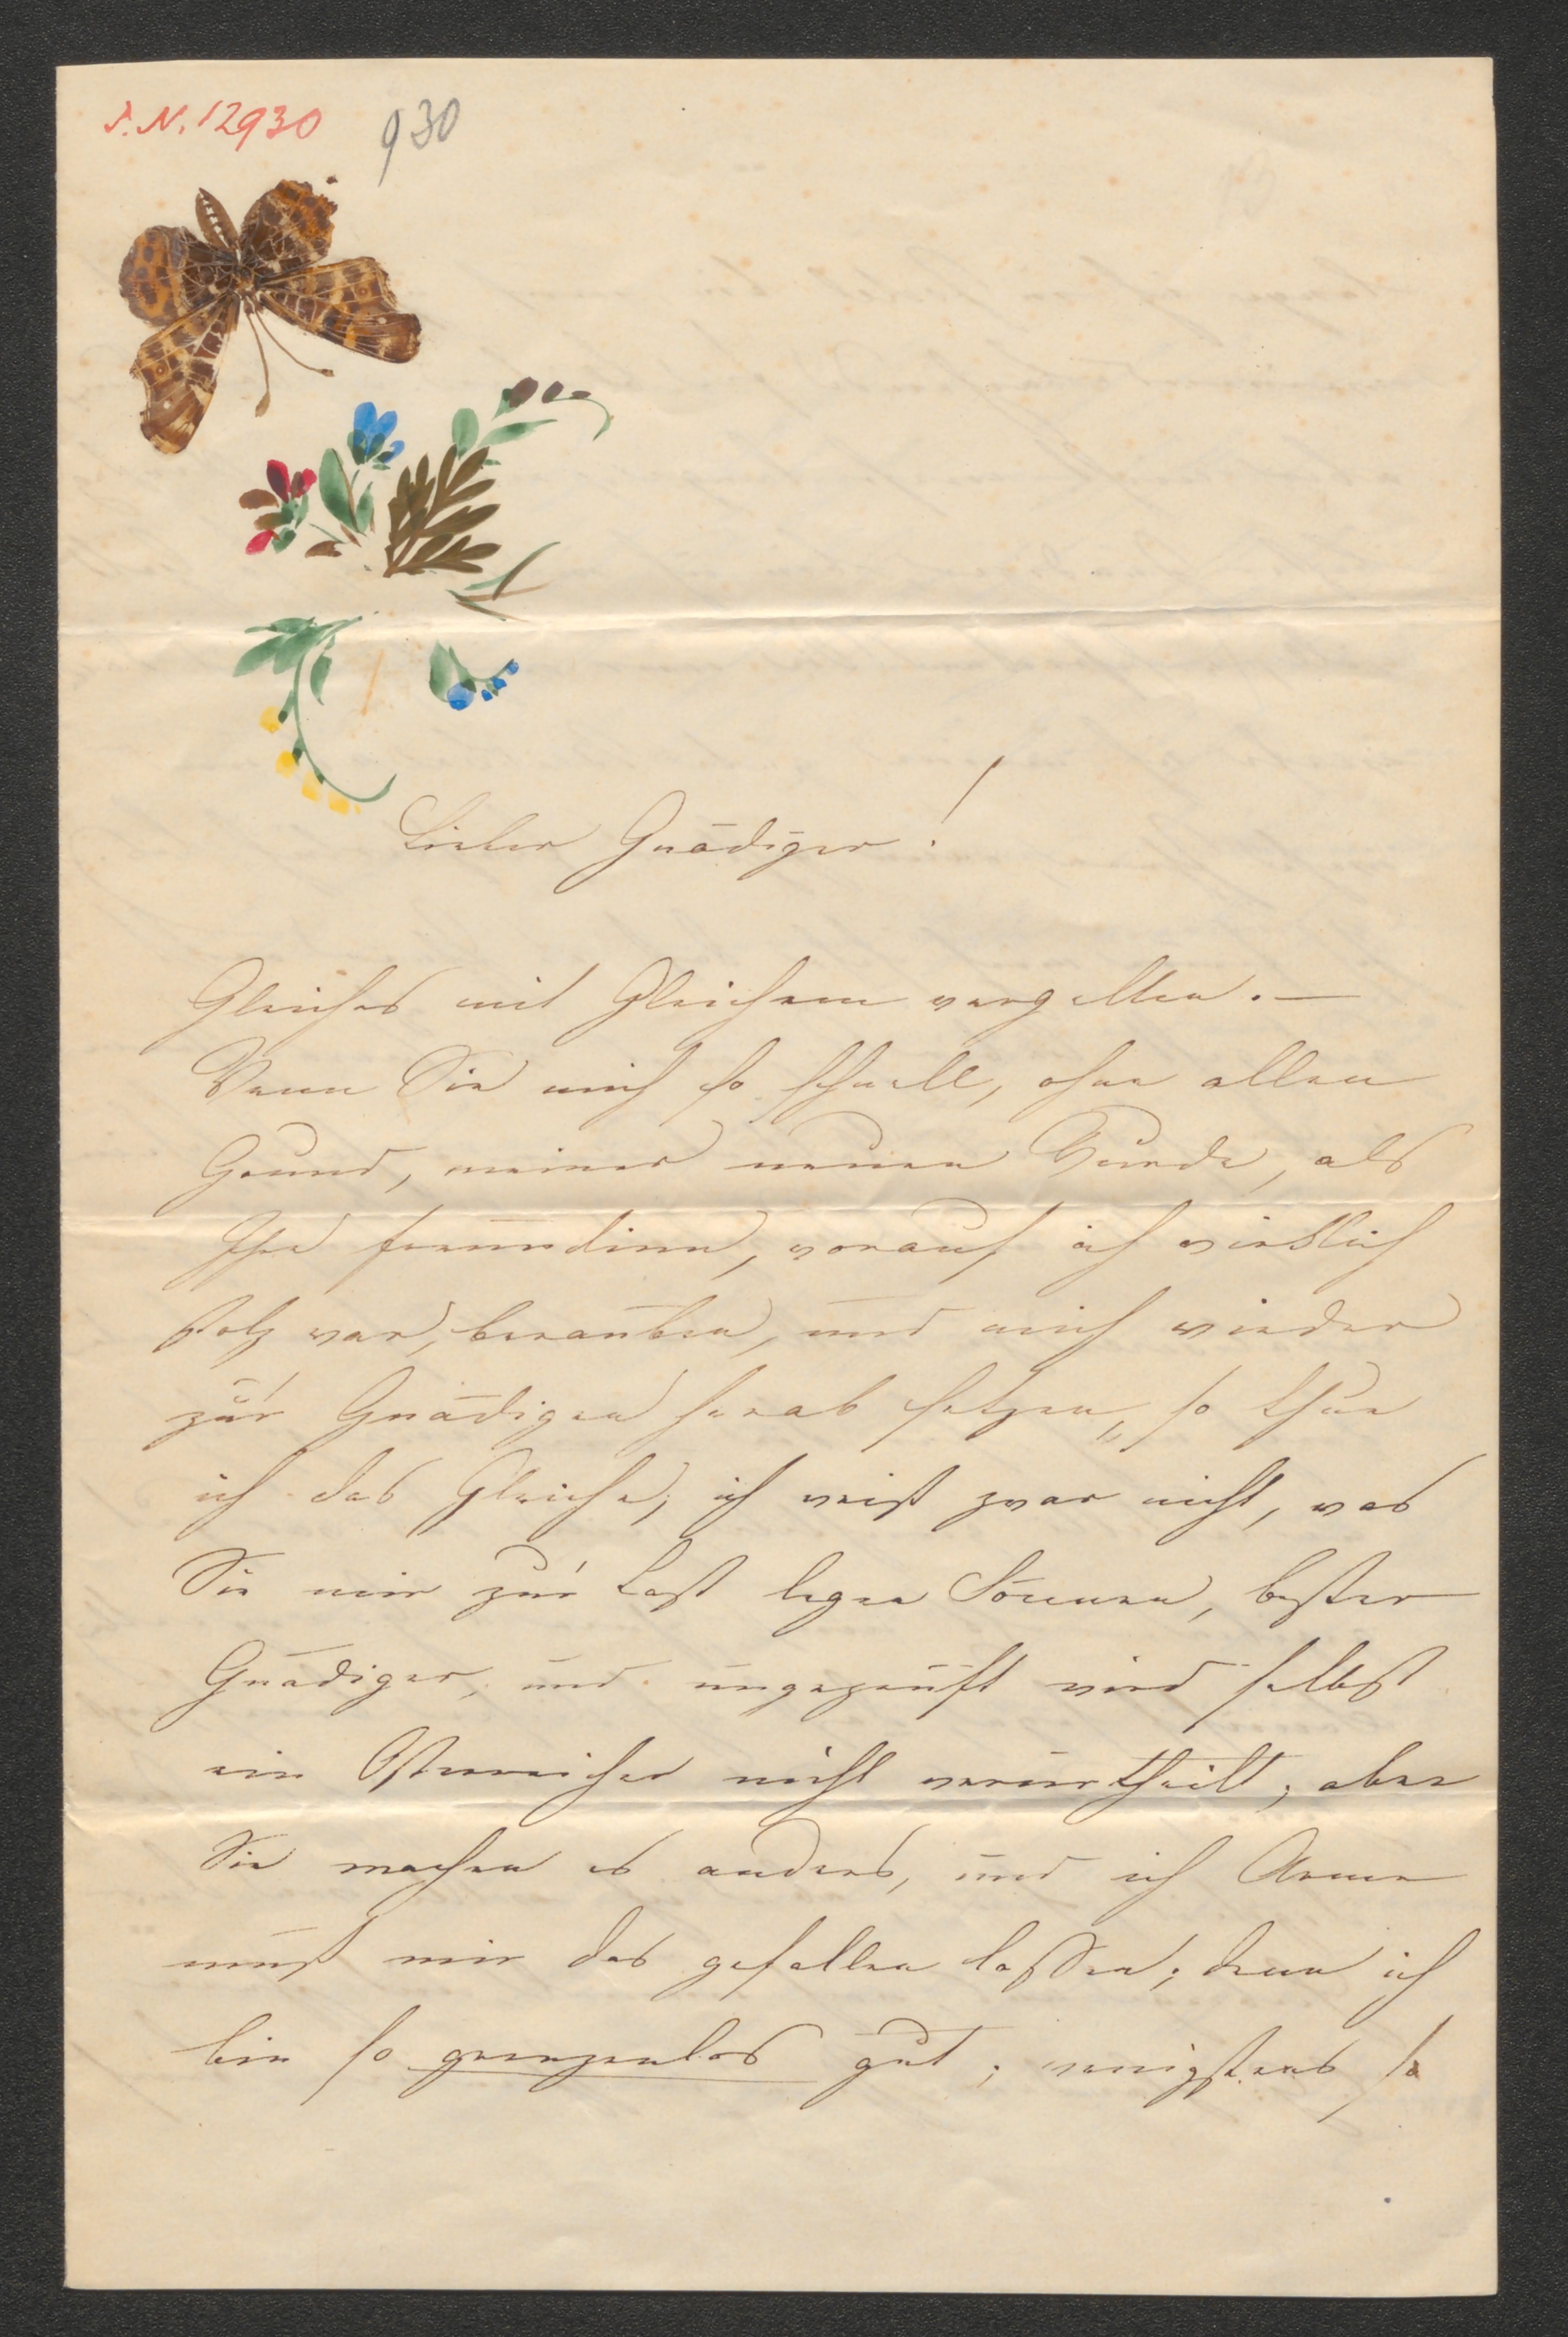 I. N. 12930
930
Lieber Gnädiger!
Gleiches mit Gleichem vergelten. —
Wenn Sie mich so schnell, ohne allen
Grund, meiner neuen Würde, als
Ihre Freundinn, worauf ich wirklich
stolz war, berauben, und mich wieder
zur Gnädigen herab setzen, so thue
ich das Gleiche; ich weiß zwar nicht, was
Sie mir zur Last legen können, bester
Gnädiger, und ungeprüft wird selbst
ein Östereicher nicht verurtheilt; aber
Sie machen es anders, und ich Arme
muß mir das gefallen lassen; denn ich
bin so grenzenlos gut; wenigstens so